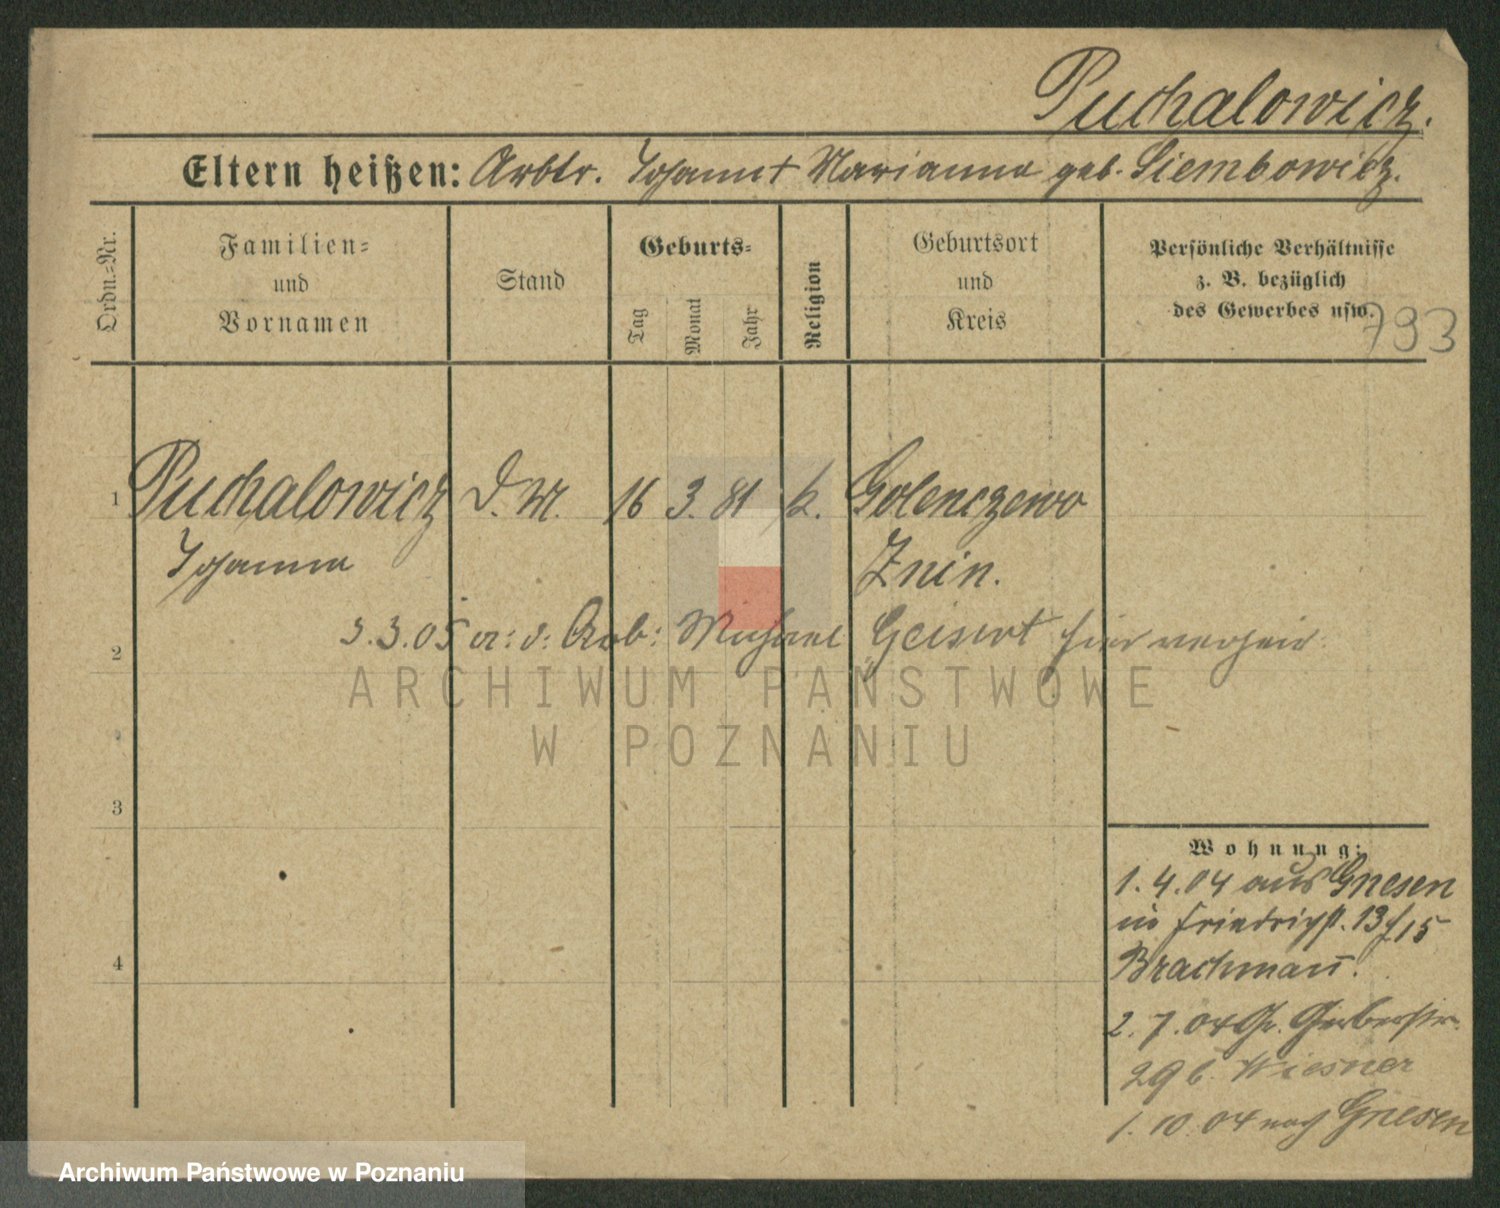 Puchalowicz.
Eltern heißen: Arbtr. Johann + Marianna geb. Siembowicz.
Ordn.-Nr.
Familien-
und
Vornamen
Stand
Geburts-
Tag
Monat
Jahr
Religion
Geburtsort
und
Kreis
Persönliche Verhältnisse
z. B. bezüglich
des Gewerbes usw.
793
1 Puchalowicz D. M. 16 3. 81 k. Golenczewo
Johanna Znin.
2 3.3.05 a: d: Arb: Michael Geisert hier verheir.
ARCHIWUM PAŃSTWOWE
W POZNANIU
3
4
Wohnung:
1. 4. 04 aus Gnesen
in Friedrichst. 13 f 15
Brachmann.
2. 7. 04 Gr. Gerberstr.
29 b. Wiesner
1. 10. 04 nach Gnesen
Archiwum Państwowe w Poznaniu